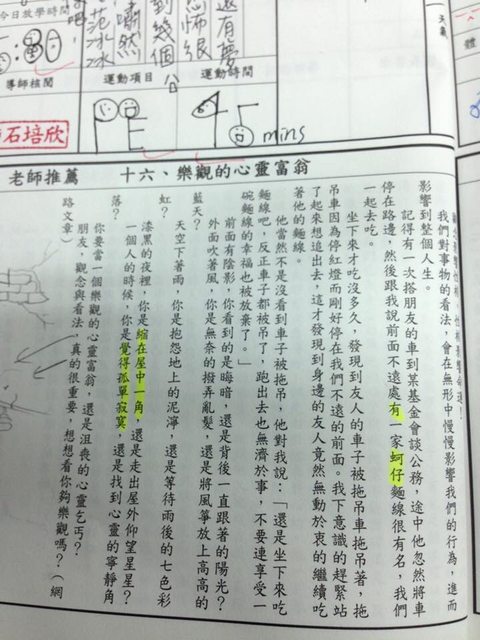 還有夢
恐怖很
到幾個
嘯然
今日放學時間
導師核閱
運動項目
運動時間
天氣
體
石培欣
PE
45
mins
老師推薦
十六、樂觀的心靈富翁
我們對事物的看法，會在無形中慢慢影響我們的行為，進而
影響到整個人生。
記得有一次搭朋友的車到某基金會談公務，途中他忽然將車
停在路邊，然後跟我說前面不遠處有一家蚵仔麵線很有名，我們
一起去吃。
坐下來才吃沒多久，發現到友人的車子被拖吊車拖吊著，拖
吊車因為停紅燈而剛好停在我們不遠的前面。我下意識的趕緊站
了起來想追出去，這才發現到身邊的友人竟然無動於衷的繼續吃
著他的麵線。
他當然不是沒看到車子被拖吊，他對我說：「還是坐下來吃
麵線吧，反正車子都被吊了，跑出去也無濟於事，不要連享受一
碗麵線的幸福也被放棄了。」
前面有陰影，你看到的是晦暗，還是背後一直跟著的陽光？
外面吹著風，你是無奈的撥弄亂髮，還是將風箏放上高高的
藍天？
天空下著雨，你是抱怨地上的泥濘，還是等待雨後的七色彩
虹？
漆黑的夜裡，你是縮在屋中一角，還是走出屋外仰望星星？
一個人的時候，你是覺得孤單寂寞，還是找到心靈的寧靜角
落？
你要當一個樂觀的心靈富翁，還是沮喪的心靈乞丐？
朋友，觀念與看法，真的很重要，想想看你夠樂觀嗎？（網
路文章）